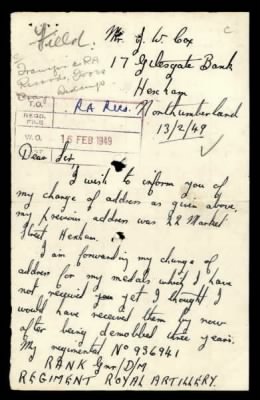 Field.
Mr. J. W. Cox
17 Gilesgate Bank
Hexham
Northumberland
13/2/49
R.A
T.O.
RA Recs.
REGD.
FILE
W.O.
16 FEB 1949
Dear Sir
I wish to inform you of
my change of address as given above,
my previous address was 22 Market
Street Hexham.
I am forwarding my change of
address for my medals which I have
not received yet, I thought I
would have received them by now
after being demobbed three years.
My regimental No 936941
RANK Gnr/D/M
REGIMENT ROYAL ARTILLERY.